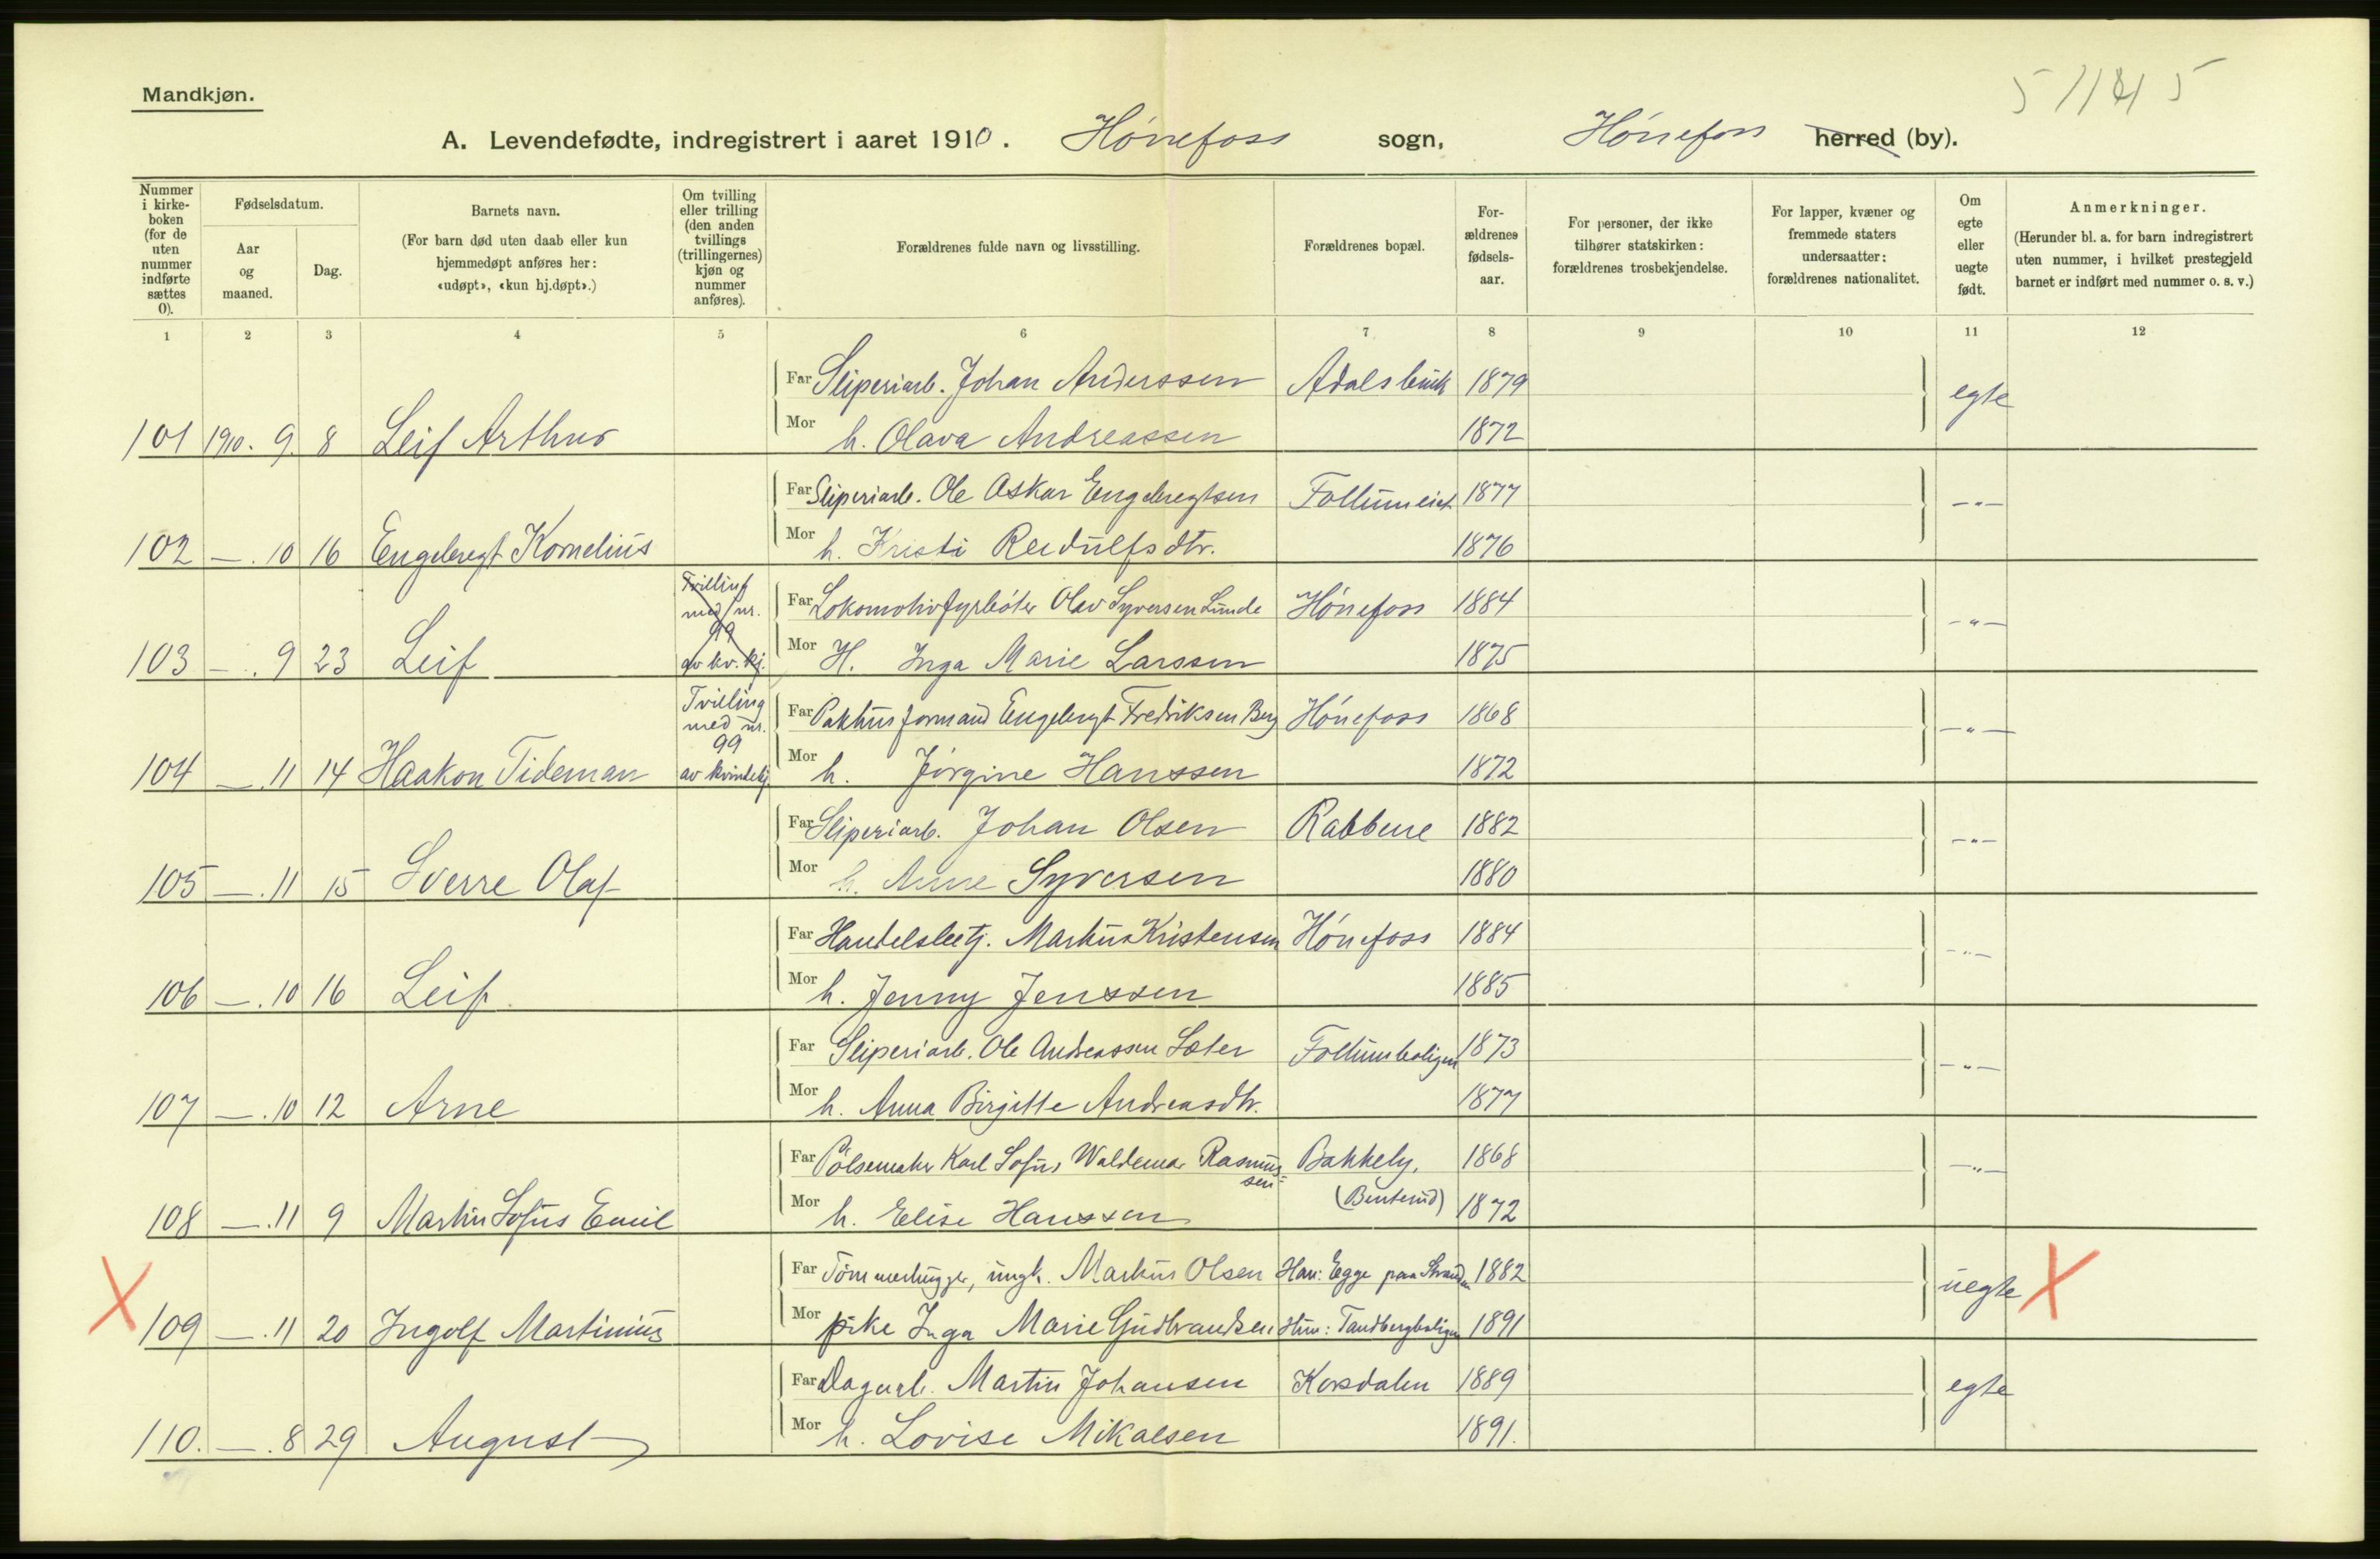 Mandkjøn.
51141 5
A. Levendefødte, indregistrert i aaret 1910. Hönefoss sogn, Hönefoss herred (by).
Nummer i kirke-boken (for de uten nummer indførte sættes 0).
Fødselsdatum.
Aar og maaned.
Dag.
Barnets navn.
(For barn død uten daab eller kun hjemmedøpt anføres her: «udøpt», «kun hj.døpt».)
Om tvilling eller trilling (den anden tvillings (trillingernes) kjøn og nummer anføres).
Forældrenes fulde navn og livsstilling.
Forældrenes bopæl.
For-ældrenes fødsels-aar.
For personer, der ikke tilhører statskirken: forældrenes trosbekjendelse.
For lapper, kvæner og fremmede staters undersaatter: forældrenes nationalitet.
Om egte eller uegte født.
Anmerkninger.
(Herunder bl. a. for barn indregistrert uten nummer, i hvilket prestegjeld barnet er indført med nummer o. s. v.)
1 2 3 4 5 6 7 8 9 10 11 12
Far Sliperiarb. Johan Anderssen Adalsbruk 1879 egte
101 1910. 9. 8 Leif Arthur Mor h. Olava Andreassen 1872
Far Sliperiarb. Ole Oskar Engebregtsen Follumeiet 1877 -"-
102 —. 10 16 Engebregt Kornelius Mor h. Kristi Reidulfsdtr. 1876
Tvilling med nr. 99 av kv. kj.
Far Lokomotivfyrböter Olav Syversen Lunde Hönefoss 1884 -"-
103 —. 9 23 Leif Mor H. Inga Marie Larssen 1875
Tvilling med nr. 99 av kvindekj.
Far Pakhusformand Engebregt Fredriksen Berg Hönefoss 1868 -"-
104 —. 11 14 Haakon Tideman Mor h. Jörgine Hanssen 1872
Far Sliperiarb. Johan Olsen Rabbene 1882 -"-
105 —. 11 15 Sverre Olaf Mor h. Anne Syversen 1880
Far Handelsbetj. Markus Kristensen Hönefoss 1884 -"-
106 —. 10 16 Leif. Mor h. Jenny Jenssen 1885
Far Sliperiarb. Ole Andreassen Sæter Follumboligen 1873 -"-
107 —. 10 12 Arne Mor h. Anna Birgitte Andreasdtr. 1877
Far Pölsemaker Karl Sofus Waldemar Rasmus-sen Bakkely. 1868 -"-
108 —. 11 9 Martin Sofus Emil Mor h. Elise Hanssen (Benterud) 1872
Far Tömmerhugger, ungk. Markus Olsen Han: Egge paa Stranden 1882 uegte X
X 109 —. 11 20 Ingolf Martinius Mor pike Inga Marie Gudbrandsen Hun: Tandbergboligen 1891
Far Dagarb. Martin Johansen Korsdalen 1889 egte
110. —. 8 29 August Mor h. Lovise Mikalsen 1891.